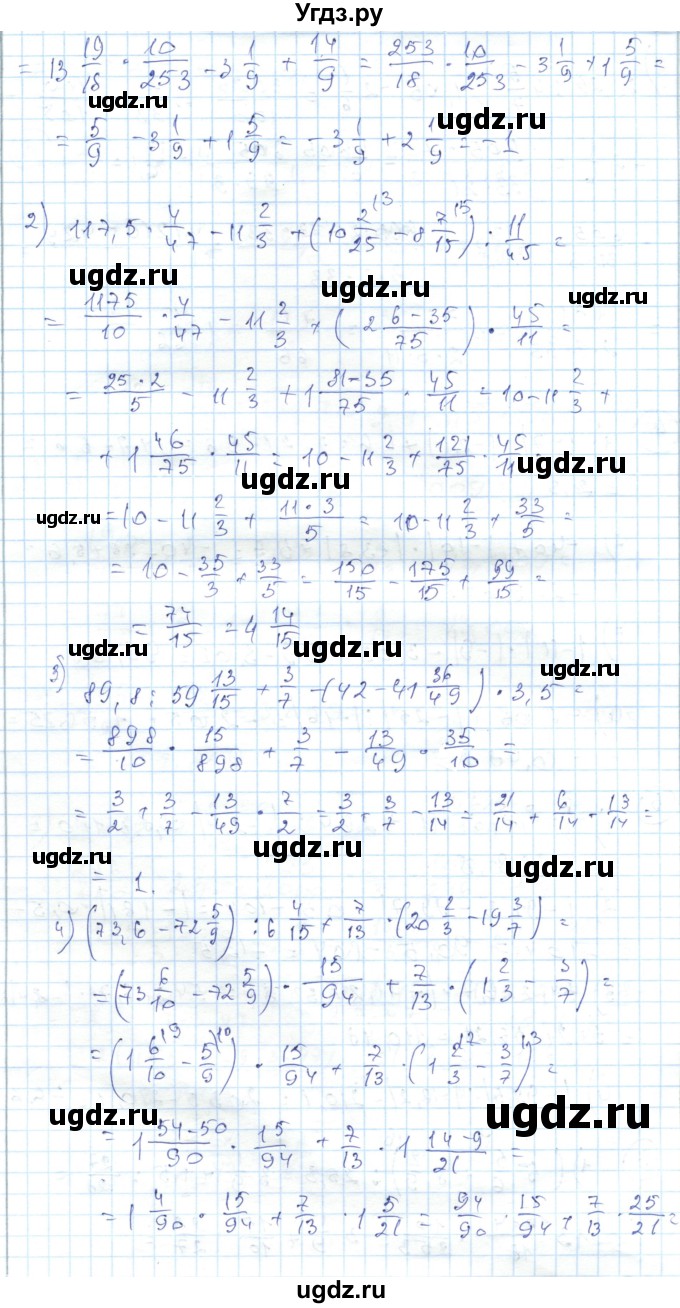 Угдз.ру
= 13 19/18 · 10/253 - 3 1/9 + 14/9 = 253/18 · 10/253 - 3 1/9 + 1 5/9 =
ugdz.ru ugdz.ru
= 5/9 - 3 1/9 + 1 5/9 = - 3 1/9 + 2 1/9 = - 1
ugdz.ru
2) 117,5 · 4/47 - 11 2/3 + (10 2/25 - 8 7/15) : 11/45 =
ugdz.ru ugdz.ru ugdz.ru
= 1175/10 · 4/47 - 11 2/3 + (2 6-35/75) · 45/11 =
= 25·2/5 - 11 2/3 + 1 81-35/75 · 45/11 = 10 - 11 2/3 +
ugdz.ru ugdz.ru
+ 1 46/75 · 45/11 = 10 - 11 2/3 + 121/75 · 45/11 =
ugdz.ru ugdz.ru ugdz.ru
= 10 - 11 2/3 + 11·3/5 = 10 - 11 2/3 + 33/5 =
= 10 - 35/3 + 33/5 = 150/15 - 175/15 + 99/15 =
ugdz.ru ugdz.ru
= 74/15 = 4 14/15
ugdz.ru ugdz.ru
3) 89,8 : 59 13/15 + 3/7 - (42 - 41 36/49) · 3,5 =
ugdz.ru ugdz.ru
= 898/10 · 15/898 + 3/7 - 13/49 · 35/10 =
= 3/2 + 3/7 - 13/49 · 7/2 = 3/2 + 3/7 - 13/14 = 21/14 + 6/14 - 13/14 =
ugdz.ru ugdz.ru ugdz.ru
= 1.
4) (73,6 - 72 5/9) : 6 4/15 + 7/13 · (20 2/3 - 19 3/7) =
ugdz.ru ugdz.ru
= (73 6/10 - 72 5/9) · 15/94 + 7/13 · (1 2/3 - 3/7) =
ugdz.ru
= (1 6/10 - 5/9) · 15/94 + 7/13 · (1 2/3 - 3/7) =
ugdz.ru ugdz.ru
= 1 54-50/90 · 15/94 + 7/13 · 1 14-9/21 =
ugdz.ru ugdz.ru
= 1 4/90 · 15/94 + 7/13 · 1 5/21 = 94/90 · 15/94 + 7/13 · 25/21 =
ugdz.ru